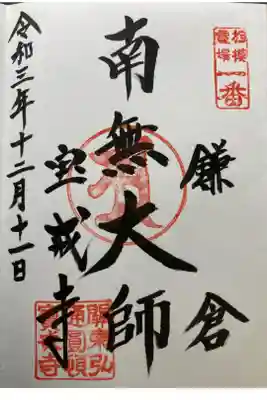 相模
霊場
一番
鎌倉
南無大師
宝戒寺
令和三年十二月十一日
關東弘
通圓頓
寶戒寺